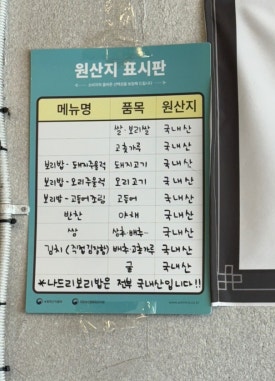 원산지 표시판
메뉴명 품목 원산지
쌀·보리쌀 국내산
고춧가루 국내산
보리밥-돼지주물럭 돼지고기 국내산
보리밥-오리주물럭 오리고기 국내산
보리밥-고등어조림 고등어 국내산
반찬 야채 국내산
쌈 상추·배추 국내산
김치(직접김장함) 배추·고춧가루 국내산
귤 국내산
*나드리보리밥은 전부 국내산입니다!!